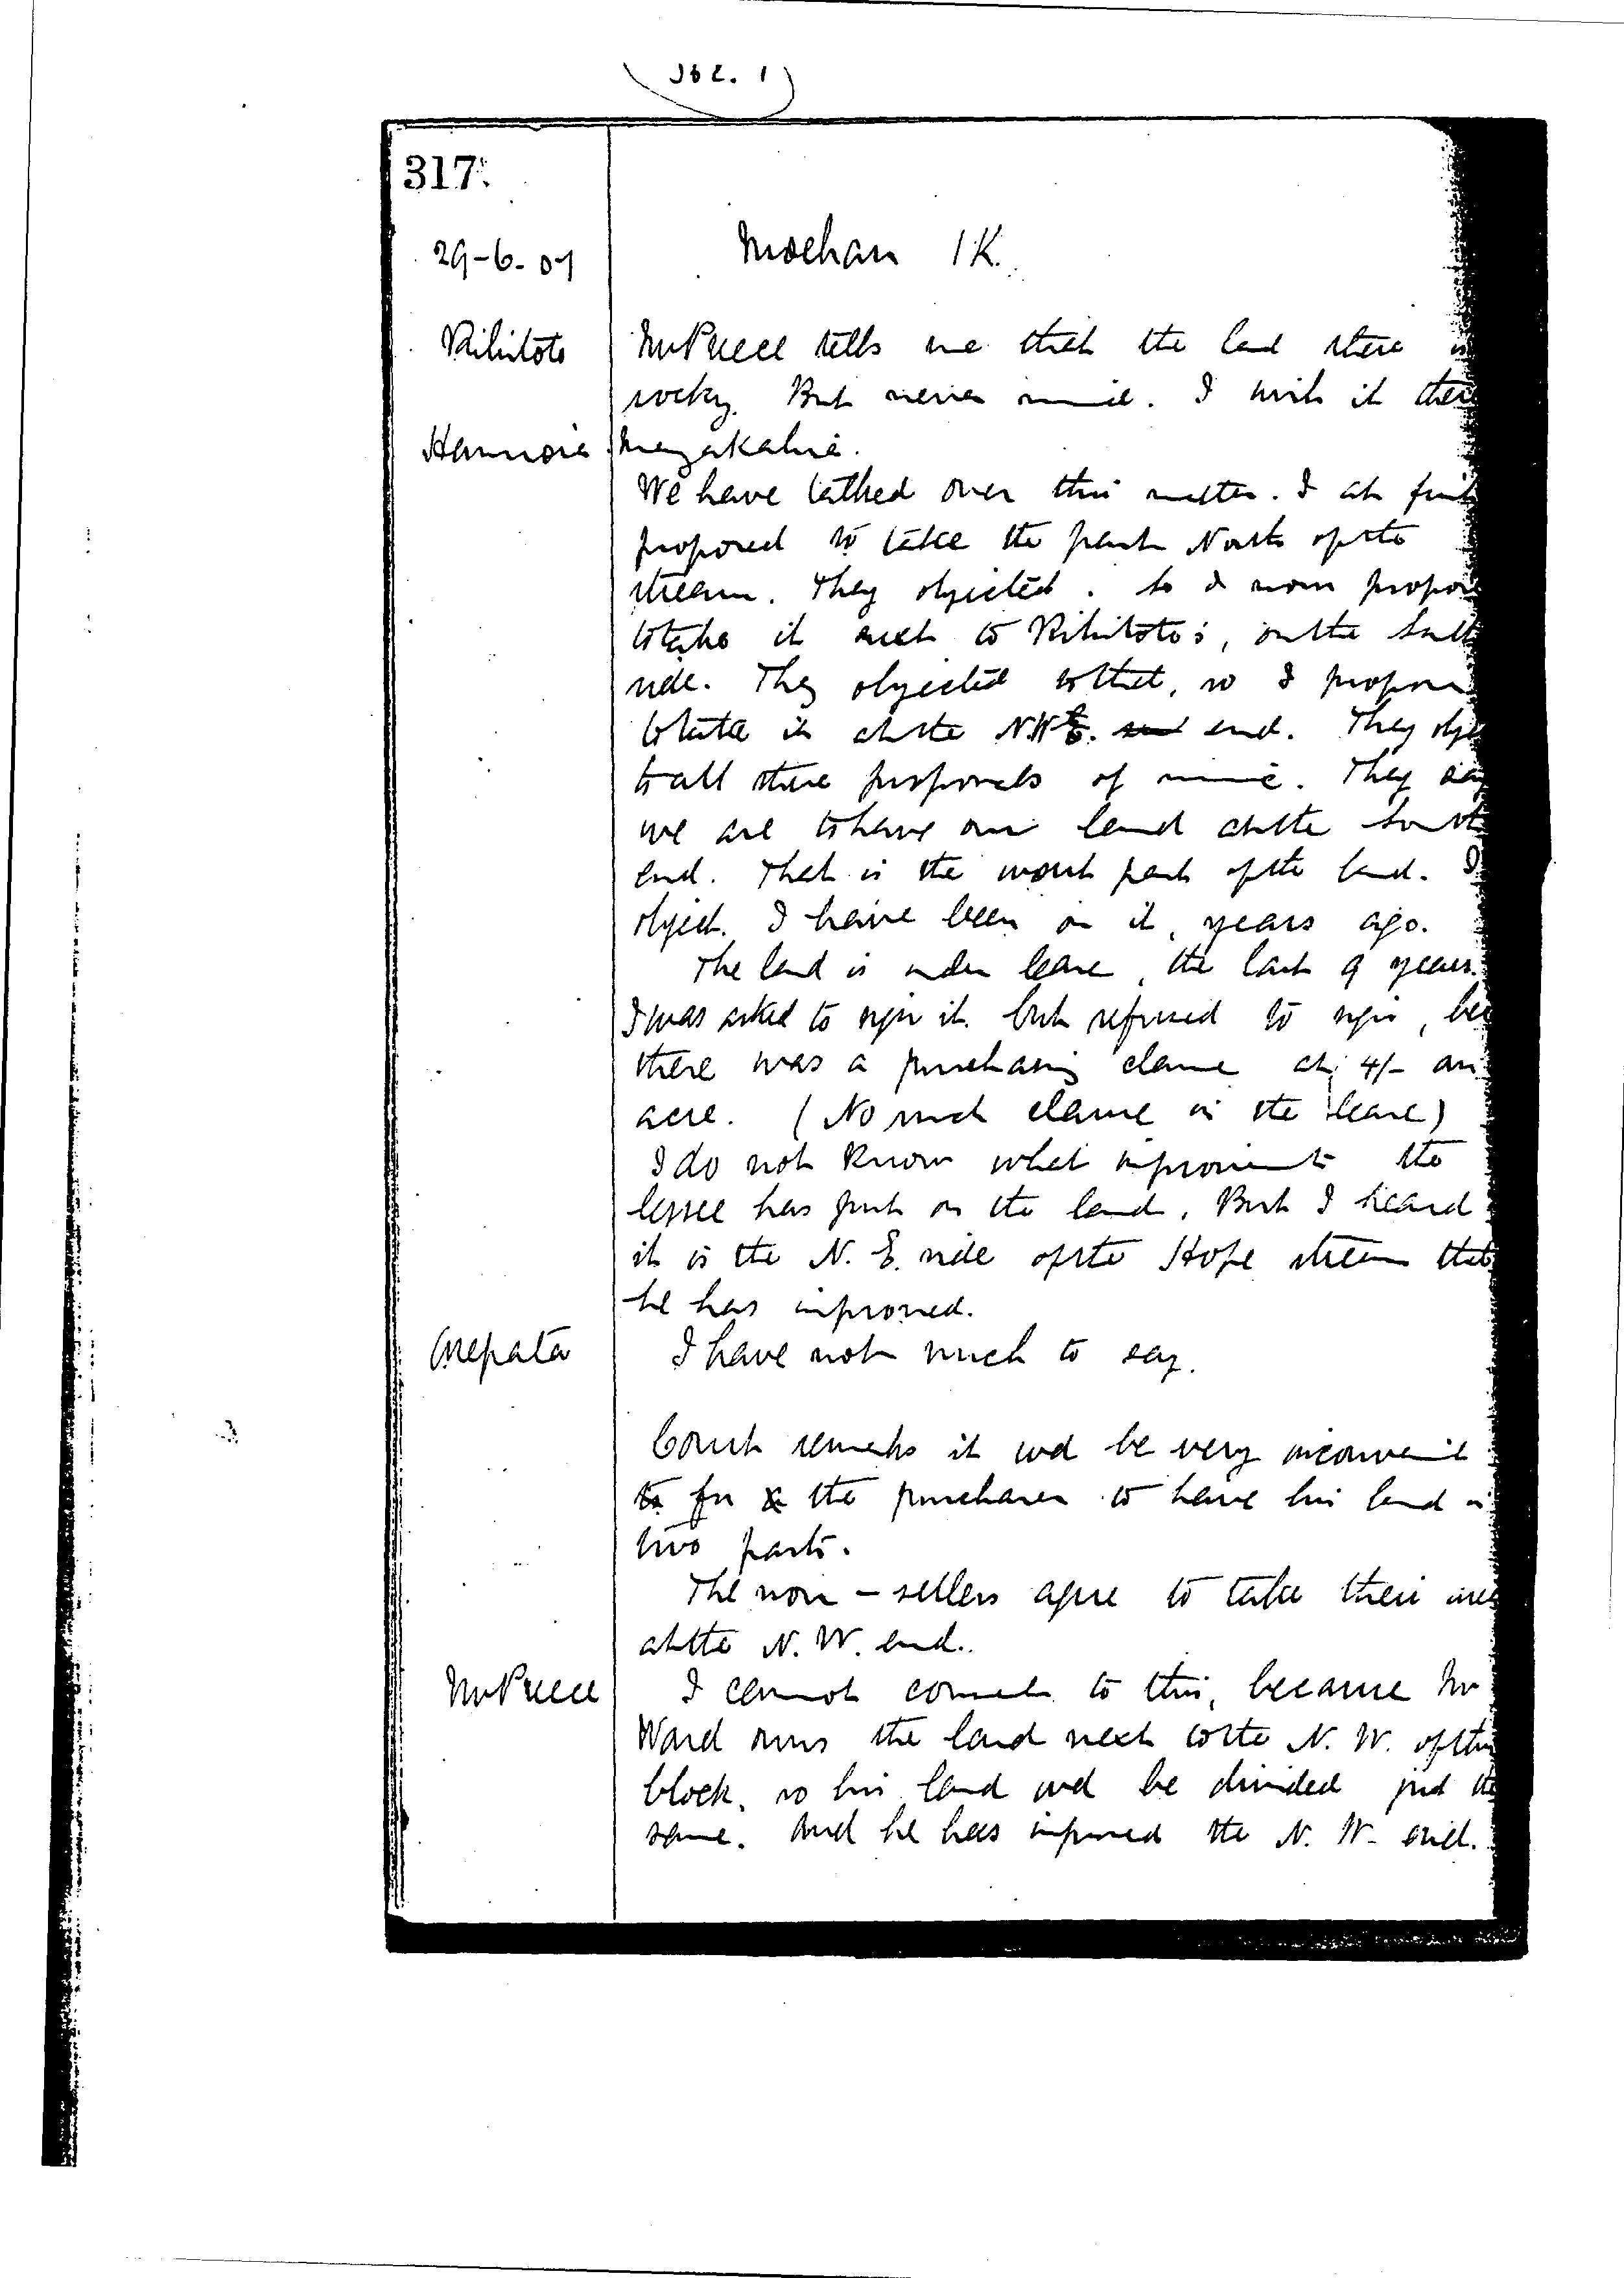 317.
29-6-07
Moehau 1K.
Rihitoto
Mr Preece tells me that the land there is
rocky. But never mind. I wish it there
We have talked over this matter. I at first
proposed to take the part North of the
stream. They objected. So I now propose
to take it next to Rihitoto's, on the South
side. They objected to that, so I propose
to take it at the N.W. end. They
to all these proposals of mine. They say
we are to have our land at the South
end. That is the worst part of the land. I
object. I have been on it, years ago.
The land is under lease, the last 9 years.
I was asked to sign it. but refused to sign,
there was a purchasing clause at 4/- an
acre. (No such clause in the lease)
I do not know what improvements the
lessee has put on the land. But I heard
it is the N. E. side of the Hope stream that
he has improved.
I have not much to say.
Court remarks it wd be very inconvenient
for the purchaser to have his land in
two parts.
The non-sellers agree to take their area
at the N. W. end.
Mr Preece
I cannot consent to this, because Mr
Ward owns the land next to the N. W. of this
block, so his land wd be divided just the
same. And he has improved the N. W. end.